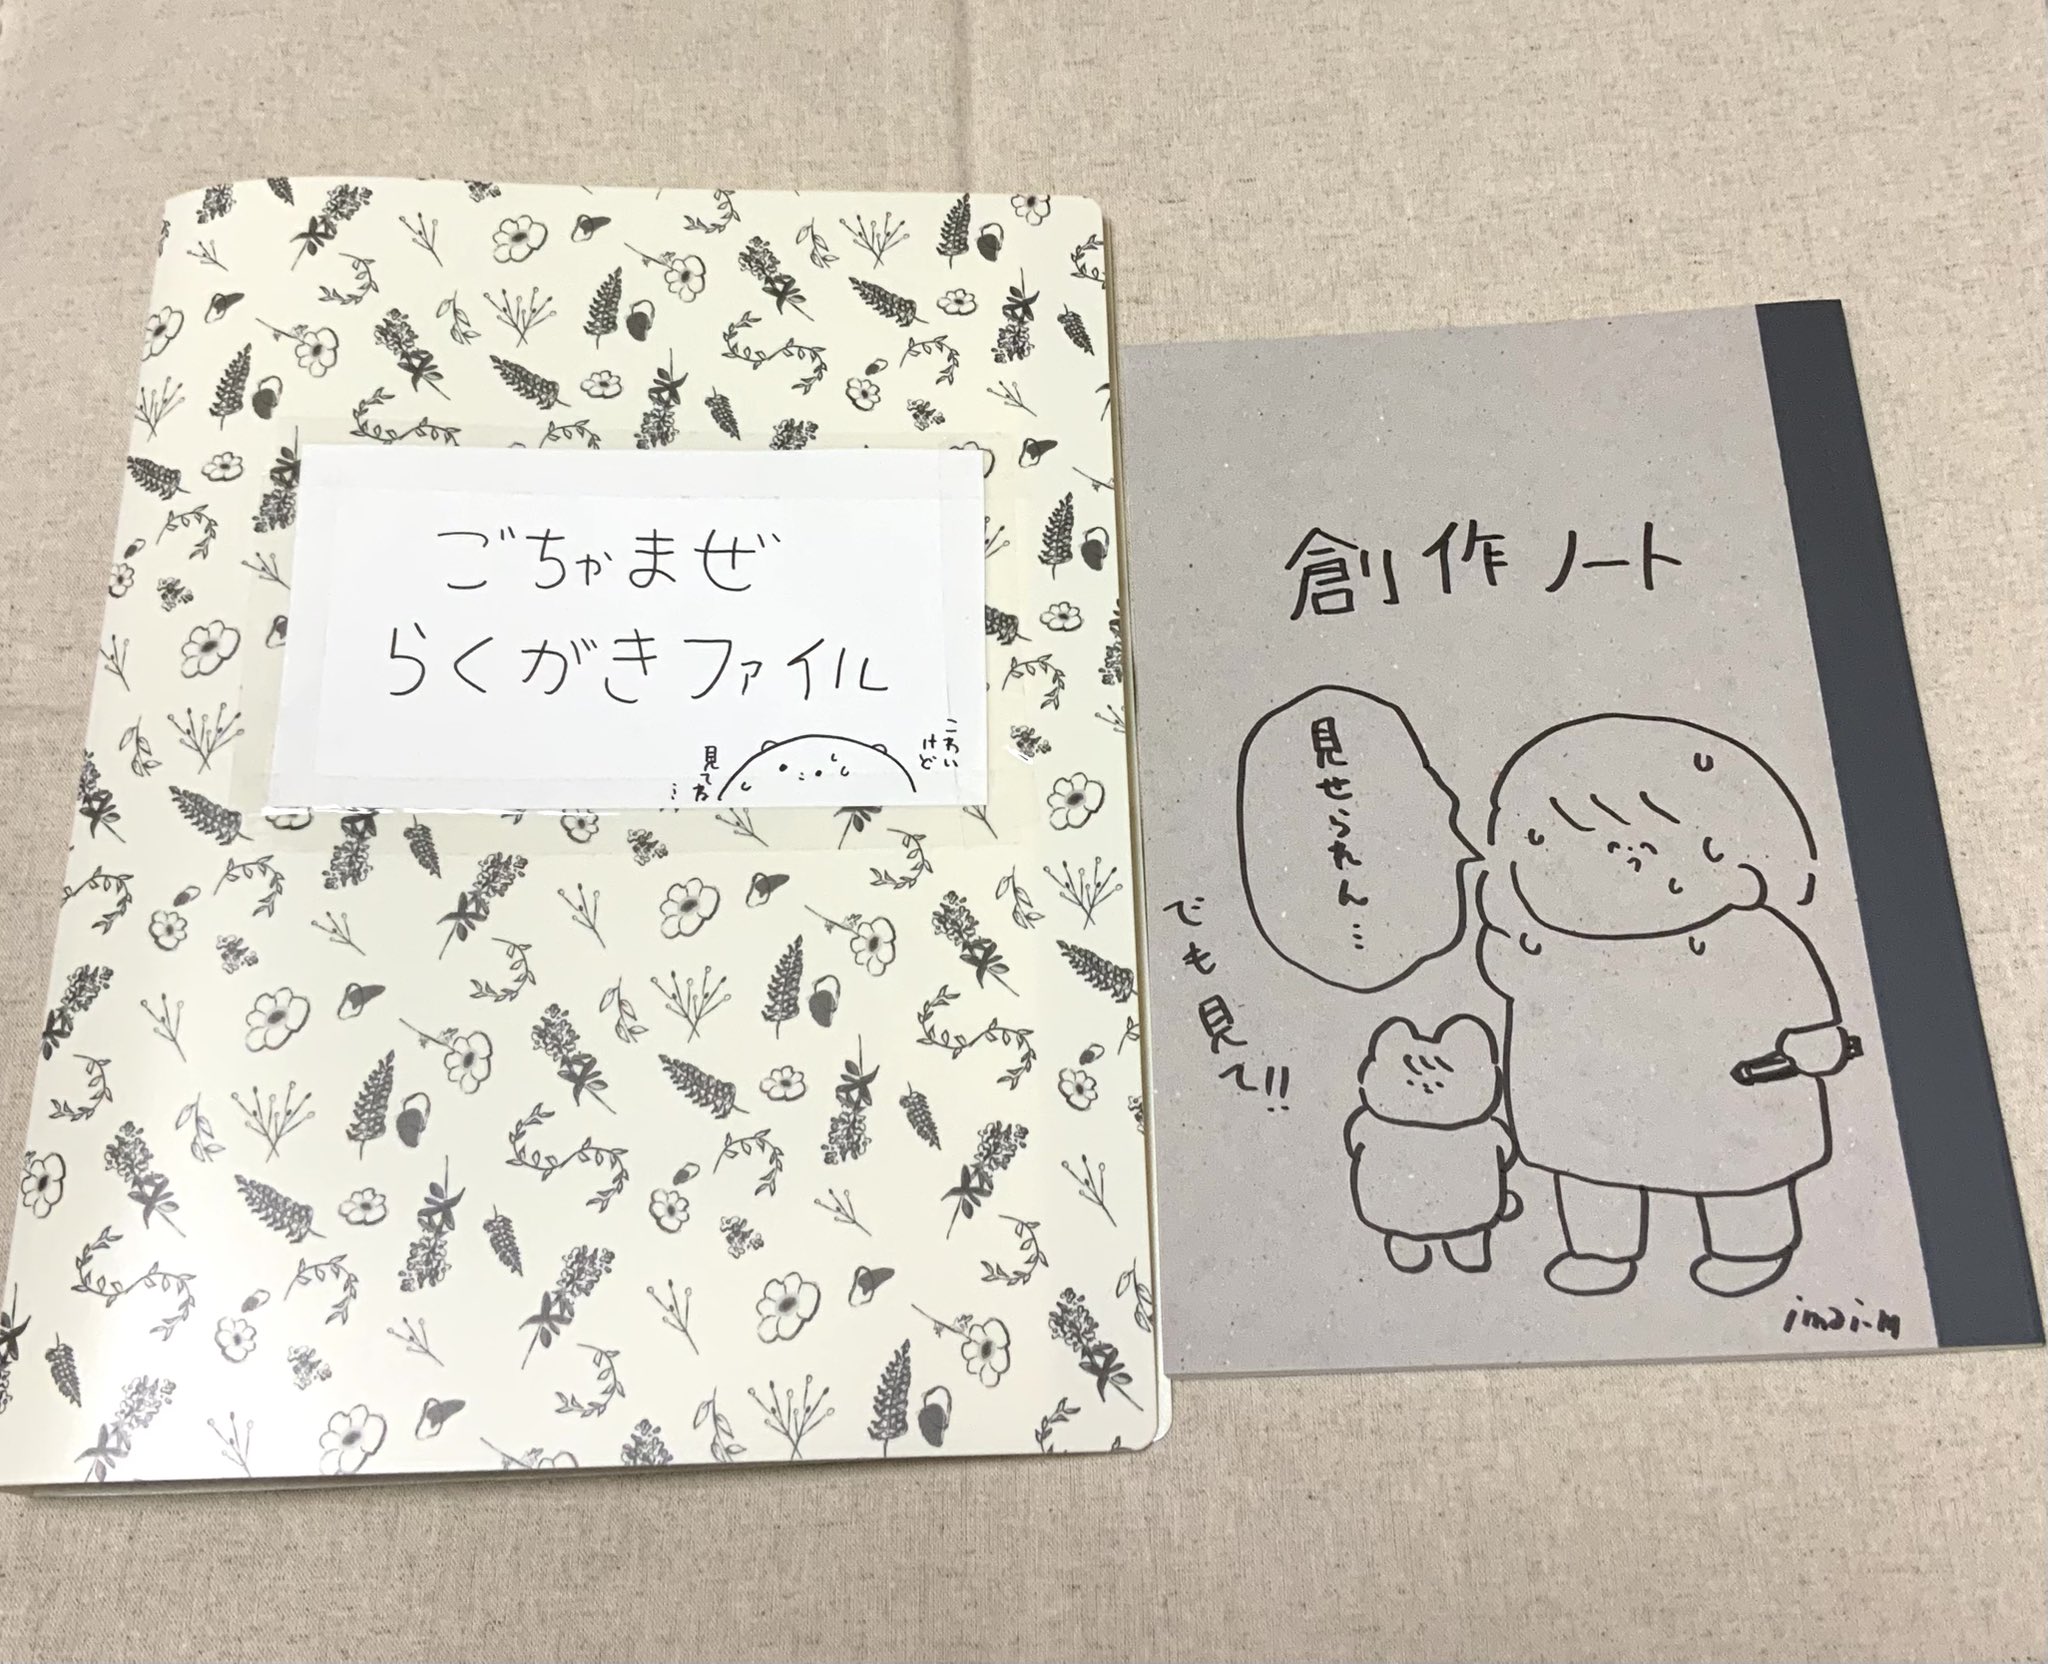 ごちゃまぜ
らくがきファイル
こわい
けど
見てね
創作ノート
見せられん…
でも見て!!
imai-m